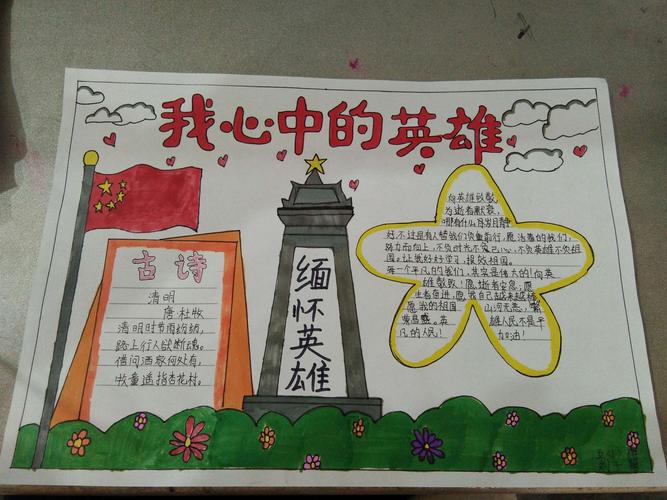 我心中的英雄
古诗
清明
唐 杜牧
清明时节雨纷纷,
路上行人欲断魂。
借问酒家何处有,
牧童遥指杏花村。
缅怀英雄
向英雄致敬,
为逝者默哀,
哪有什么岁月静
好,不过是有人替我们负重前行,愿活着的我们,
努力而向上,不负时光不负己心,不负英雄不负祖
国。让我好好学习,报效祖国。
每一个平凡的我们,其实是伟大的!向英
雄致敬!愿逝者安息,愿
生者奋进,愿我自己越来越棒
愿我的祖国 山河无恙,繁
荣昌盛。英 雄人民不是平
凡的人民! 加油!